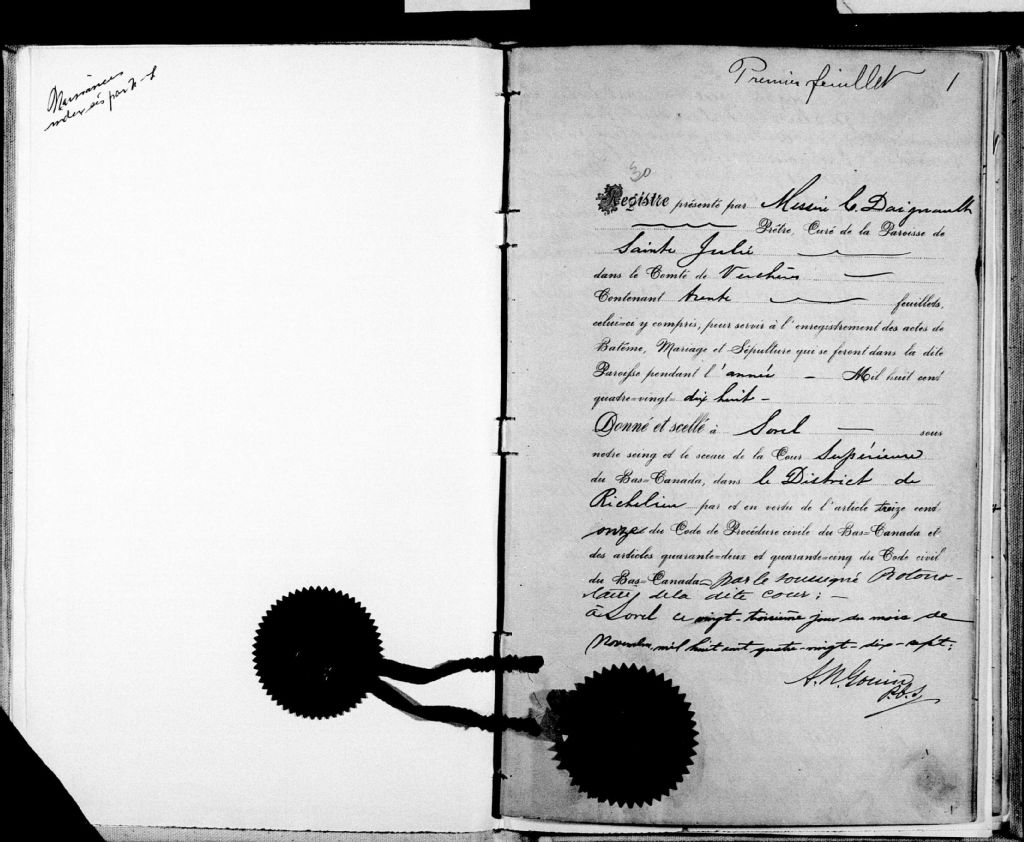 Premier feuillet 1
30
Registre présenté par Messire C. Daignault
Prêtre, Curé de la Paroisse de
Sainte Julie
dans le Comté de Verchères
Contenant trente feuillets,
celui-ci y compris, pour servir à l'enregistrement des actes de
Batême, Mariage et Sépulture qui se feront dans la dite
Paroisse pendant l'année — Mil huit cent
quatre-vingt dix huit —
Donné et scellé à Sorel — sous
notre seing et le sceau de la Cour Supérieure
du Bas-Canada, dans le District de
Richelieu par et en vertu de l'article treize cent
onze du Code de Procédure civile du Bas-Canada et
des articles quarante-deux et quarante-cinq du Code civil
du Bas-Canada, par le soussigné Protono-
taire de la dite cour: —
à Sorel ce vingt-troisième jour du mois de
Novembre, mil huit cent quatre-vingt-dix-sept:
A. N. Gouin
P.C.S.